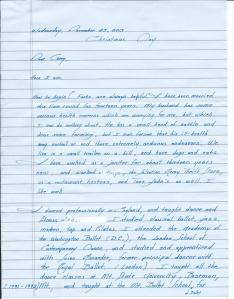 Wednesday, December 25, 2013
Christmas Day
Dear Corry,
Here I am.
How to begin? Facts are always helpful. I have been married
this time round for fourteen years. My husband has some
serious health concerns which are worrying for me, but which
I can do nothing about. He has a small herd of cattle and
does some farming, but I can foresee that his ill-health
may curtail or end these extremely arduous endeavors. We
live in a small trailer on a hill, and have dogs and cats.
I have worked as a janitor for about thirteen years
now, and worked at the Salvation Army Thrift Store,
as a restaurant hostess, and Taco John's as well. I
like work.
I danced professionally in Ireland, and taught dance and
fitness also. I studied classical ballet, jazz,
modern, tap and Pilates. I attended the Academy of
the Washington Ballet (D.C.), the London School of
Contemporary Dance, and studied and apprenticed
with June, former principal dancer with
the Royal Ballet (London). I taught all the
dance classes at Mt. State University - Bozeman,
(1991-1993) MT, and taught at the Mt. Ballet School, for